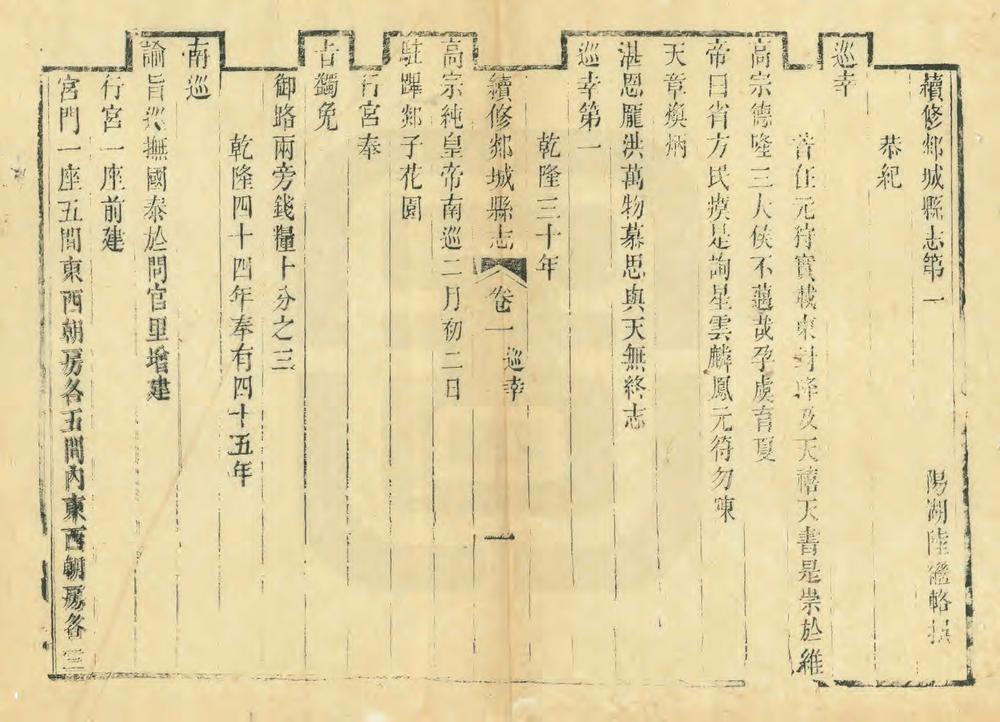 續修郯城縣志第一
陽湖陸繼輅撰
恭紀
巡幸
昔在元狩實載東封降及天禧天書是崇於維
高宗德隆三大侯不邁哉孕虞育夏
帝曰省方民瘼是詢星雲麟鳳元符勿陳
天章煥炳
湛恩龐洪萬物慕思與天無終志
巡幸第一
乾隆三十年
續修郯城縣志 卷一 巡幸 一
高宗純皇帝南巡二月初二日
駐蹕郯子花園
行宮奉
旨蠲免
御路兩旁錢糧十分之三
乾隆四十四年奉有四十五年
南巡
諭旨巡撫國泰於問官里增建
行宮一座前建
宮門一座五間東西朝房各五間內東西朝房各三